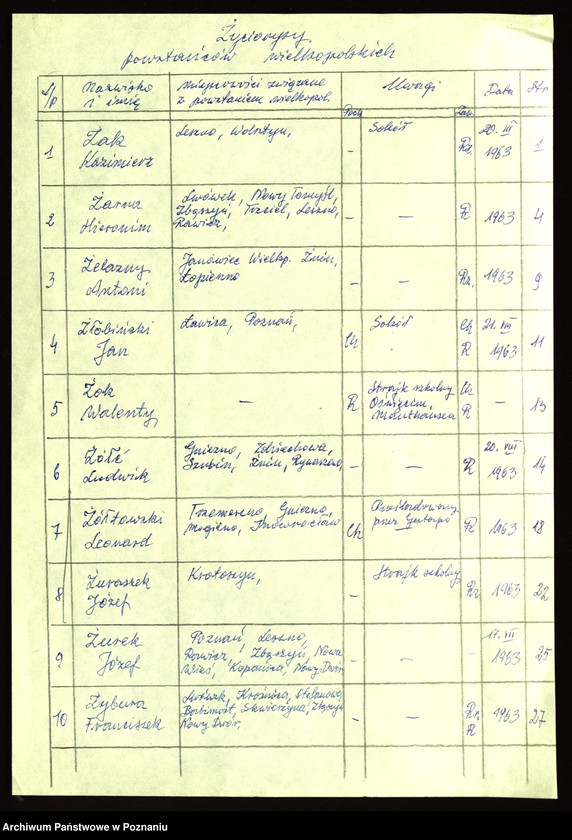 Życiorysy
powstańców wielkopolskich
L/p Nazwisko i imię Miejscowości związane z powstaniem wielkopol. Poch. Uwagi Zaw. Data Str
1 Żak Kazimierz Leszno, Wolsztyn, – Sokół Rz. 20. III 1963 1
2 Żarna Hieronim Lwówek, Nowy Tomyśl, Zbąszyń, Trzciel, Leszno, Rawicz, – – R 1963 4
3 Żelazny Antoni Janówiec Wielkp. Żnin, Łopienno – – Rz. 1963 9
4 Żłobiński Jan Ławica, Poznań, Ch Sokół Ch R 21. VIII 1963 11
5 Żok Walenty – R Strajk szkolny Oświęcim, Mauthausen Ch R – 13
6 Żółć Ludwik Gniezno, Zdziechowa, Szubin, Żnin, Rynarzewo, – – R 20. VIII 1963 14
7 Żółtowski Leonard Trzemeszno, Gniezno, Mogilno, Inowrocław Ch Prześladowany przez Gestapo R 1963 18
8 Żuraszek Józef Krotoszyn, – Strajk szkolny Rz 1963 22
9 Żurek Józef Poznań, Leszno, Rawicz, Zbąszyń, Nowa Wieś, Kopanica, Nowy Dwór – – – 17. VII 1963 25
10 Żybura Franciszek Lwówek, Kroźnica, Stefanowo, Babimost, Skwierzyna, Zbąszyń Nowy Dwór, – – Rz. R 1963 27
Archiwum Państwowe w Poznaniu